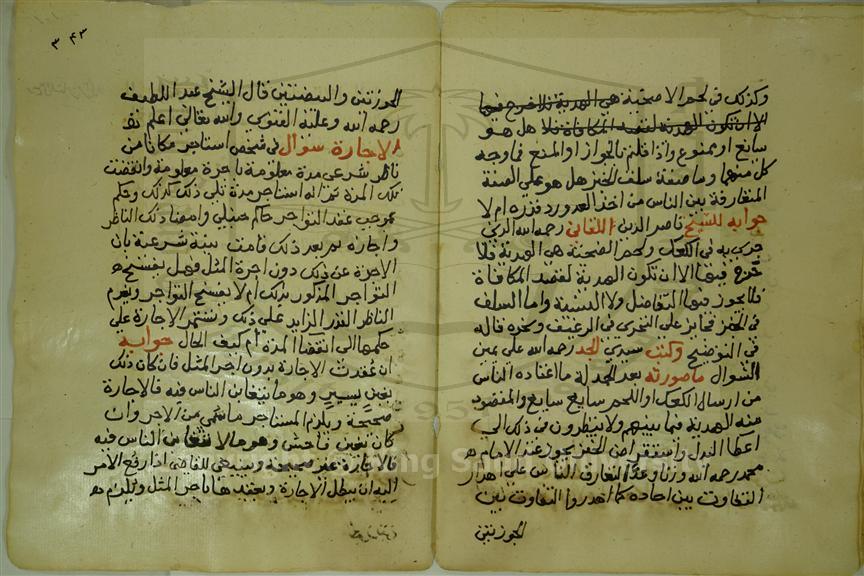 وكذلك في لحم الاضحية هي الهدية فلا حرج فيها
الا ان تكون الهدية لقصد المكافاة فلا هل هو
سايغ او ممنوع واذا قلتم بالجواز او المنع فما وجه
كل منهما وما صفة سلف الخبز هل هو على الصفة
المتعارفة بين الناس من اخذ العدد ورد قدره ام لا
جوابه للشيخ ناصر الدين اللقاني رحمه الله الذي
جرى به في الكعك ولحم الضحية هي الهدية فلا
حرج فيها الا ان تكون الهدية لقصد المكافاة
فلا يجوز فيها التفاضل ولا النسيئة واما السلف
في الخبز فجايز على التحري في الرغيف ونحوه قاله
في التوضيح وكتب سيدي الجد رحمه الله على يمين
السوال ما صورته بعد الحمدلة ما اعتاده الناس
من ارسال الكعك واللحم سايغ سايغ والمقصود
منه الهدية فيما بينهم ولا ينظرون في ذلك الى
اعطا البدل واستقراض الخبز يجوز عند الامام
محمد رحمه الله وزنا وعدا لتعارف الناس على اهدار
التفاوت بين احاده كما اهدروا التفاوت بين
الجوزتين
٣٤٣
الجوزتين والبيضتين قال الشيخ عبد اللطيف
رحمه الله وعليه الفتوى والله تعالى اعلم
الاجارة سوال في شخص استاجر مكانا من
ناظر شرعي مدة معلومة باجرة معلومة وانقضت
تلك المدة ثم انه استاجر مدة تلي ذلك كذلك وحكم
بموجب عقد التواجر حاكم حنبلي وامضا ذلك الناظر
واجازه ثم بعد ذلك قامت بينة شرعية بان
الاجرة عن ذلك دون اجرة المثل فهل يفسخ
التواجر المذكور بذلك ام لا يفسخ التواجر ويغرم
الناظر القدر الزايد على ذلك وتستمر الاجارة على
حكمها الى انقضا المدة ام كيف الحال جوابه
ان عقدت الاجارة بدون اجر المثل فان كان ذلك
بغبن يسير وهو ما يتغابن الناس فيه فالاجارة
صحيحة ويلزم المستاجر ما سمي من الاجر وان
كان بغبن فاحش وهو ما لا يتغابن الناس فيه
فالاجارة غير صحيحة وينبغي للقاضي اذا رفع الامر
اليه ان يبطل الاجارة ويعقدها باجر المثل ويلزم